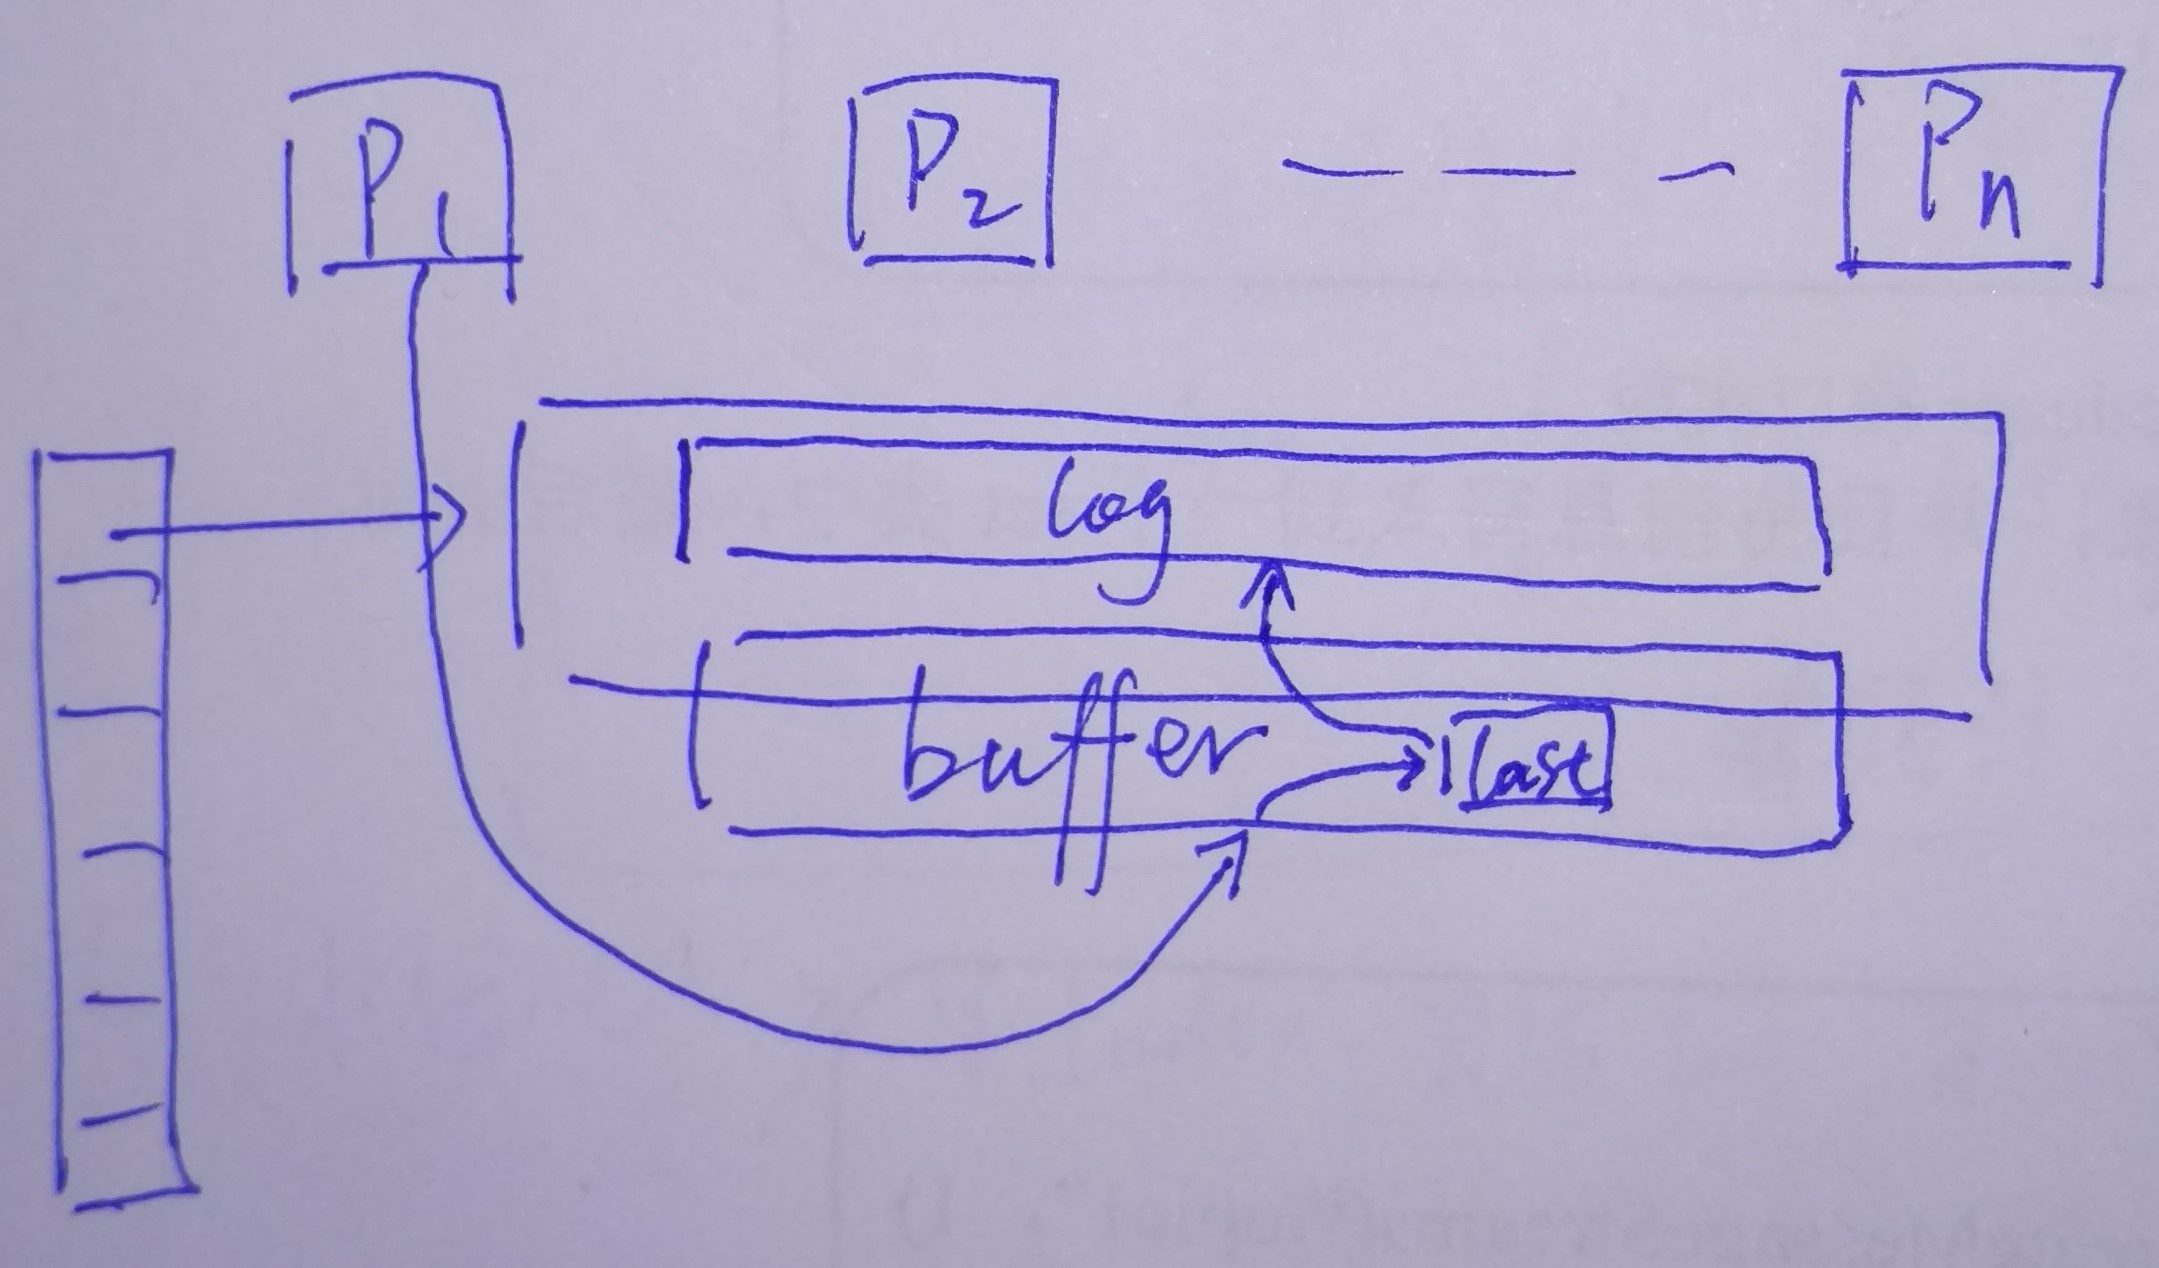 P1 P2 Pn
log
buffer last